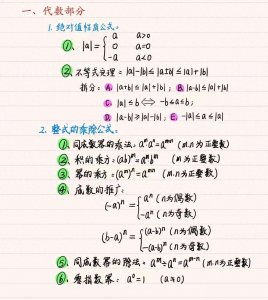 一、代数部分
1. 绝对值性质公式:
①、|a| = { a a>0
0 a=0
-a a<0
②、不等式定理:|a|-|b|≤|a±b|≤|a|+|b|
拆分:A、|a+b|≤|a|+|b|; B、|a-b|≤|a|+|b|
C、|a|≤b ⟺ -b≤a≤b;
D、|a-b|≥|a|-|b|; E、-|a|≤a≤|a|
2. 整式的乘除公式:
①、同底数幂的乘法:aᵐaⁿ=aᵐ⁺ⁿ (m.n为正整数)
②、积的乘方:(ab)ᵐ=aᵐbᵐ (m为正整数)
③、幂的乘方:(aᵐ)ⁿ=aᵐⁿ (m.n为正整数)
④、底数的推广:
(-a)ⁿ = { aⁿ (n为偶数)
-aⁿ (n为奇数)
(b-a)ⁿ = { (a-b)ⁿ (n为偶数)
-(a-b)ⁿ (n为奇数)
⑤、同底数幂的除法:aᵐ÷aⁿ=aᵐ⁻ⁿ (m.n为正整数)
⑥、零指数幂:a⁰=1 (a≠0)